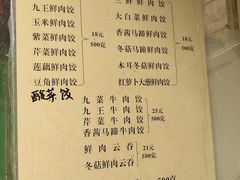 九王鲜肉饺
玉米鲜肉饺
紫菜鲜肉饺
芹菜鲜肉饺
莲藕鲜肉饺
豆角鲜肉饺
18元
500克
三鲜鲜肉饺
大白菜鲜肉饺
香茜马蹄鲜肉饺
冬菇马蹄鲜肉饺
木耳冬菇鲜肉饺
红萝卜大葱鲜肉饺
18元
500克
酸菜饺
九菜牛肉饺
九王牛肉饺
芹菜牛肉饺
香茜马蹄牛肉饺
25元
500克
鲜肉云吞
冬菇鲜肉云吞
21元
500克